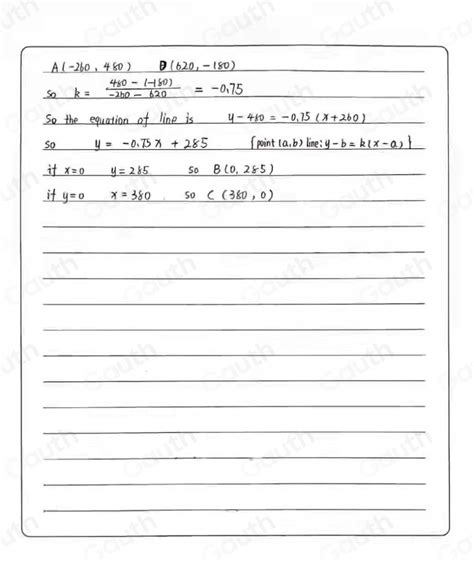 A(-260, 480) D(620, -180)
So k = \frac{480-(-180)}{-260-620} = -0.75
So the equation of line is y-480 = -0.75(x+260)
so y = -0.75x + 285 {point(a,b) line: y-b=k(x-a)}
if x=0 y=285 so B(0, 285)
if y=0 x=380 so C(380, 0)
Gauth